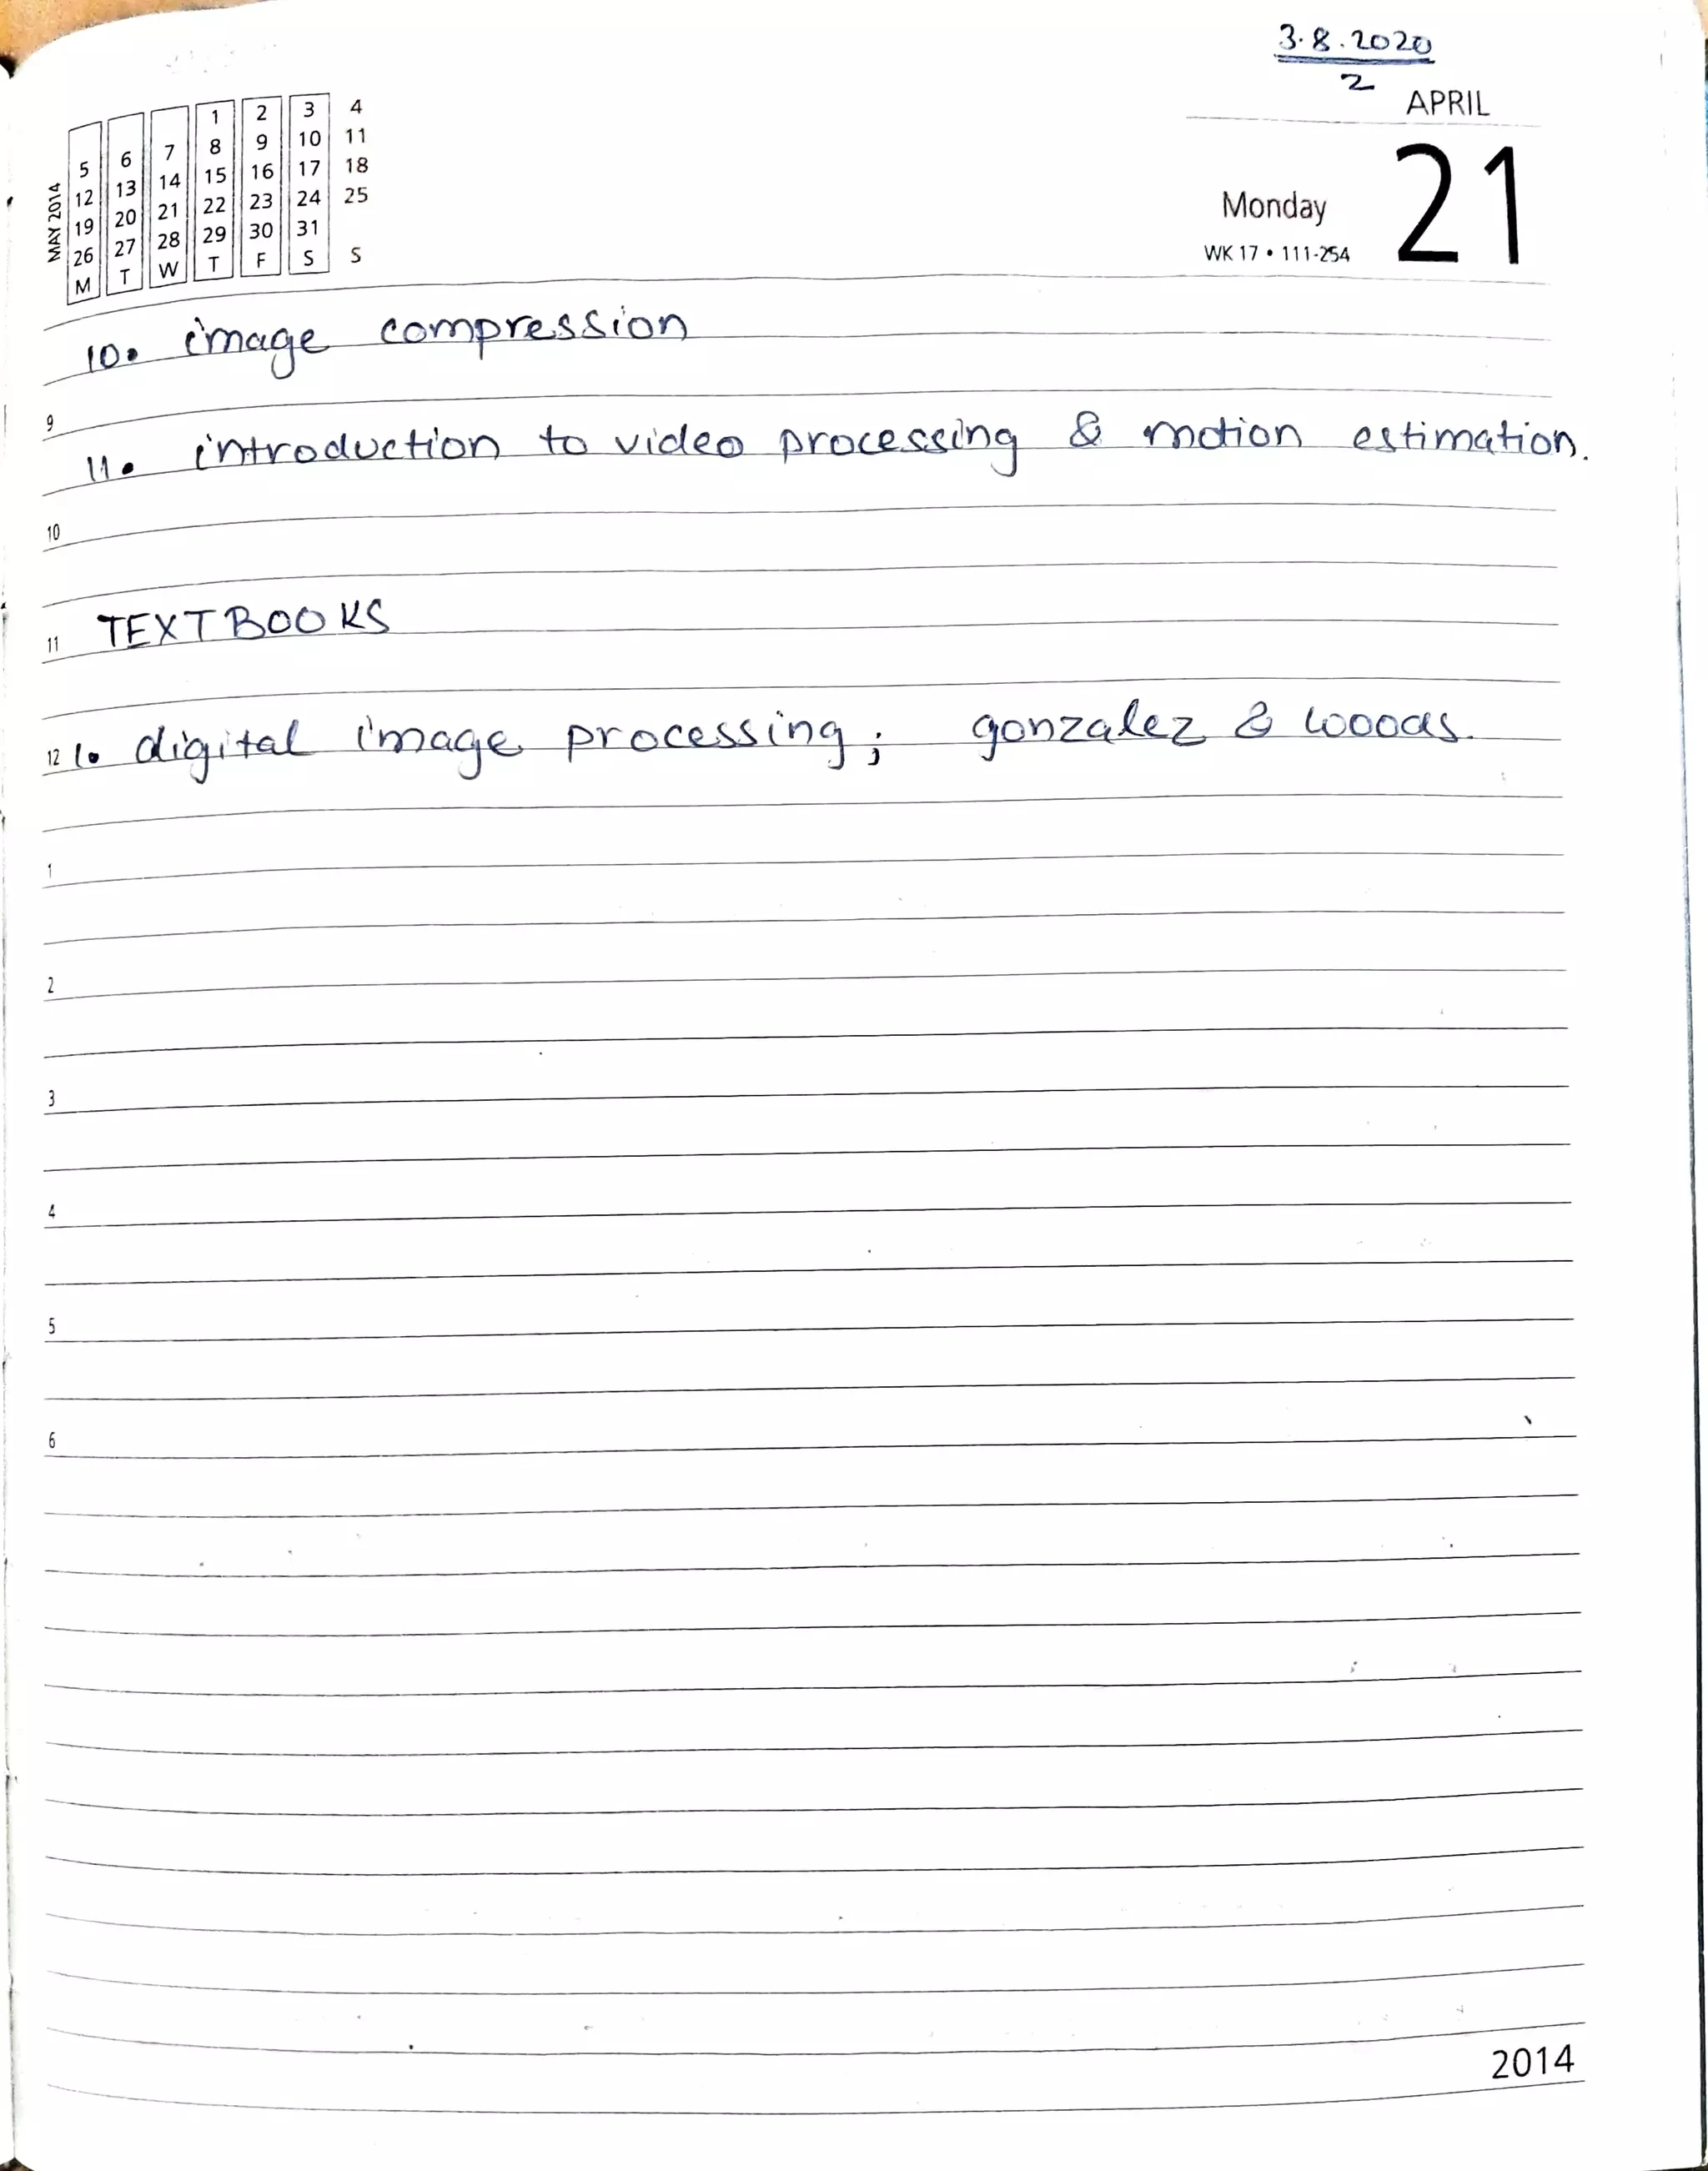 3.8.2020
2
APRIL
21
Monday
WK 17 • 111-254
MAY 2014
1 2 3 4
5 6 7 8 9 10 11
12 13 14 15 16 17 18
19 20 21 22 23 24 25
26 27 28 29 30 31
M T W T F S S
10. image compression
9
11. introduction to video processing & motion estimation.
10
11 TEXTBOOKS
12 1. digital image processing; gonzalez & woods.
1
2
3
4
5
6
2014